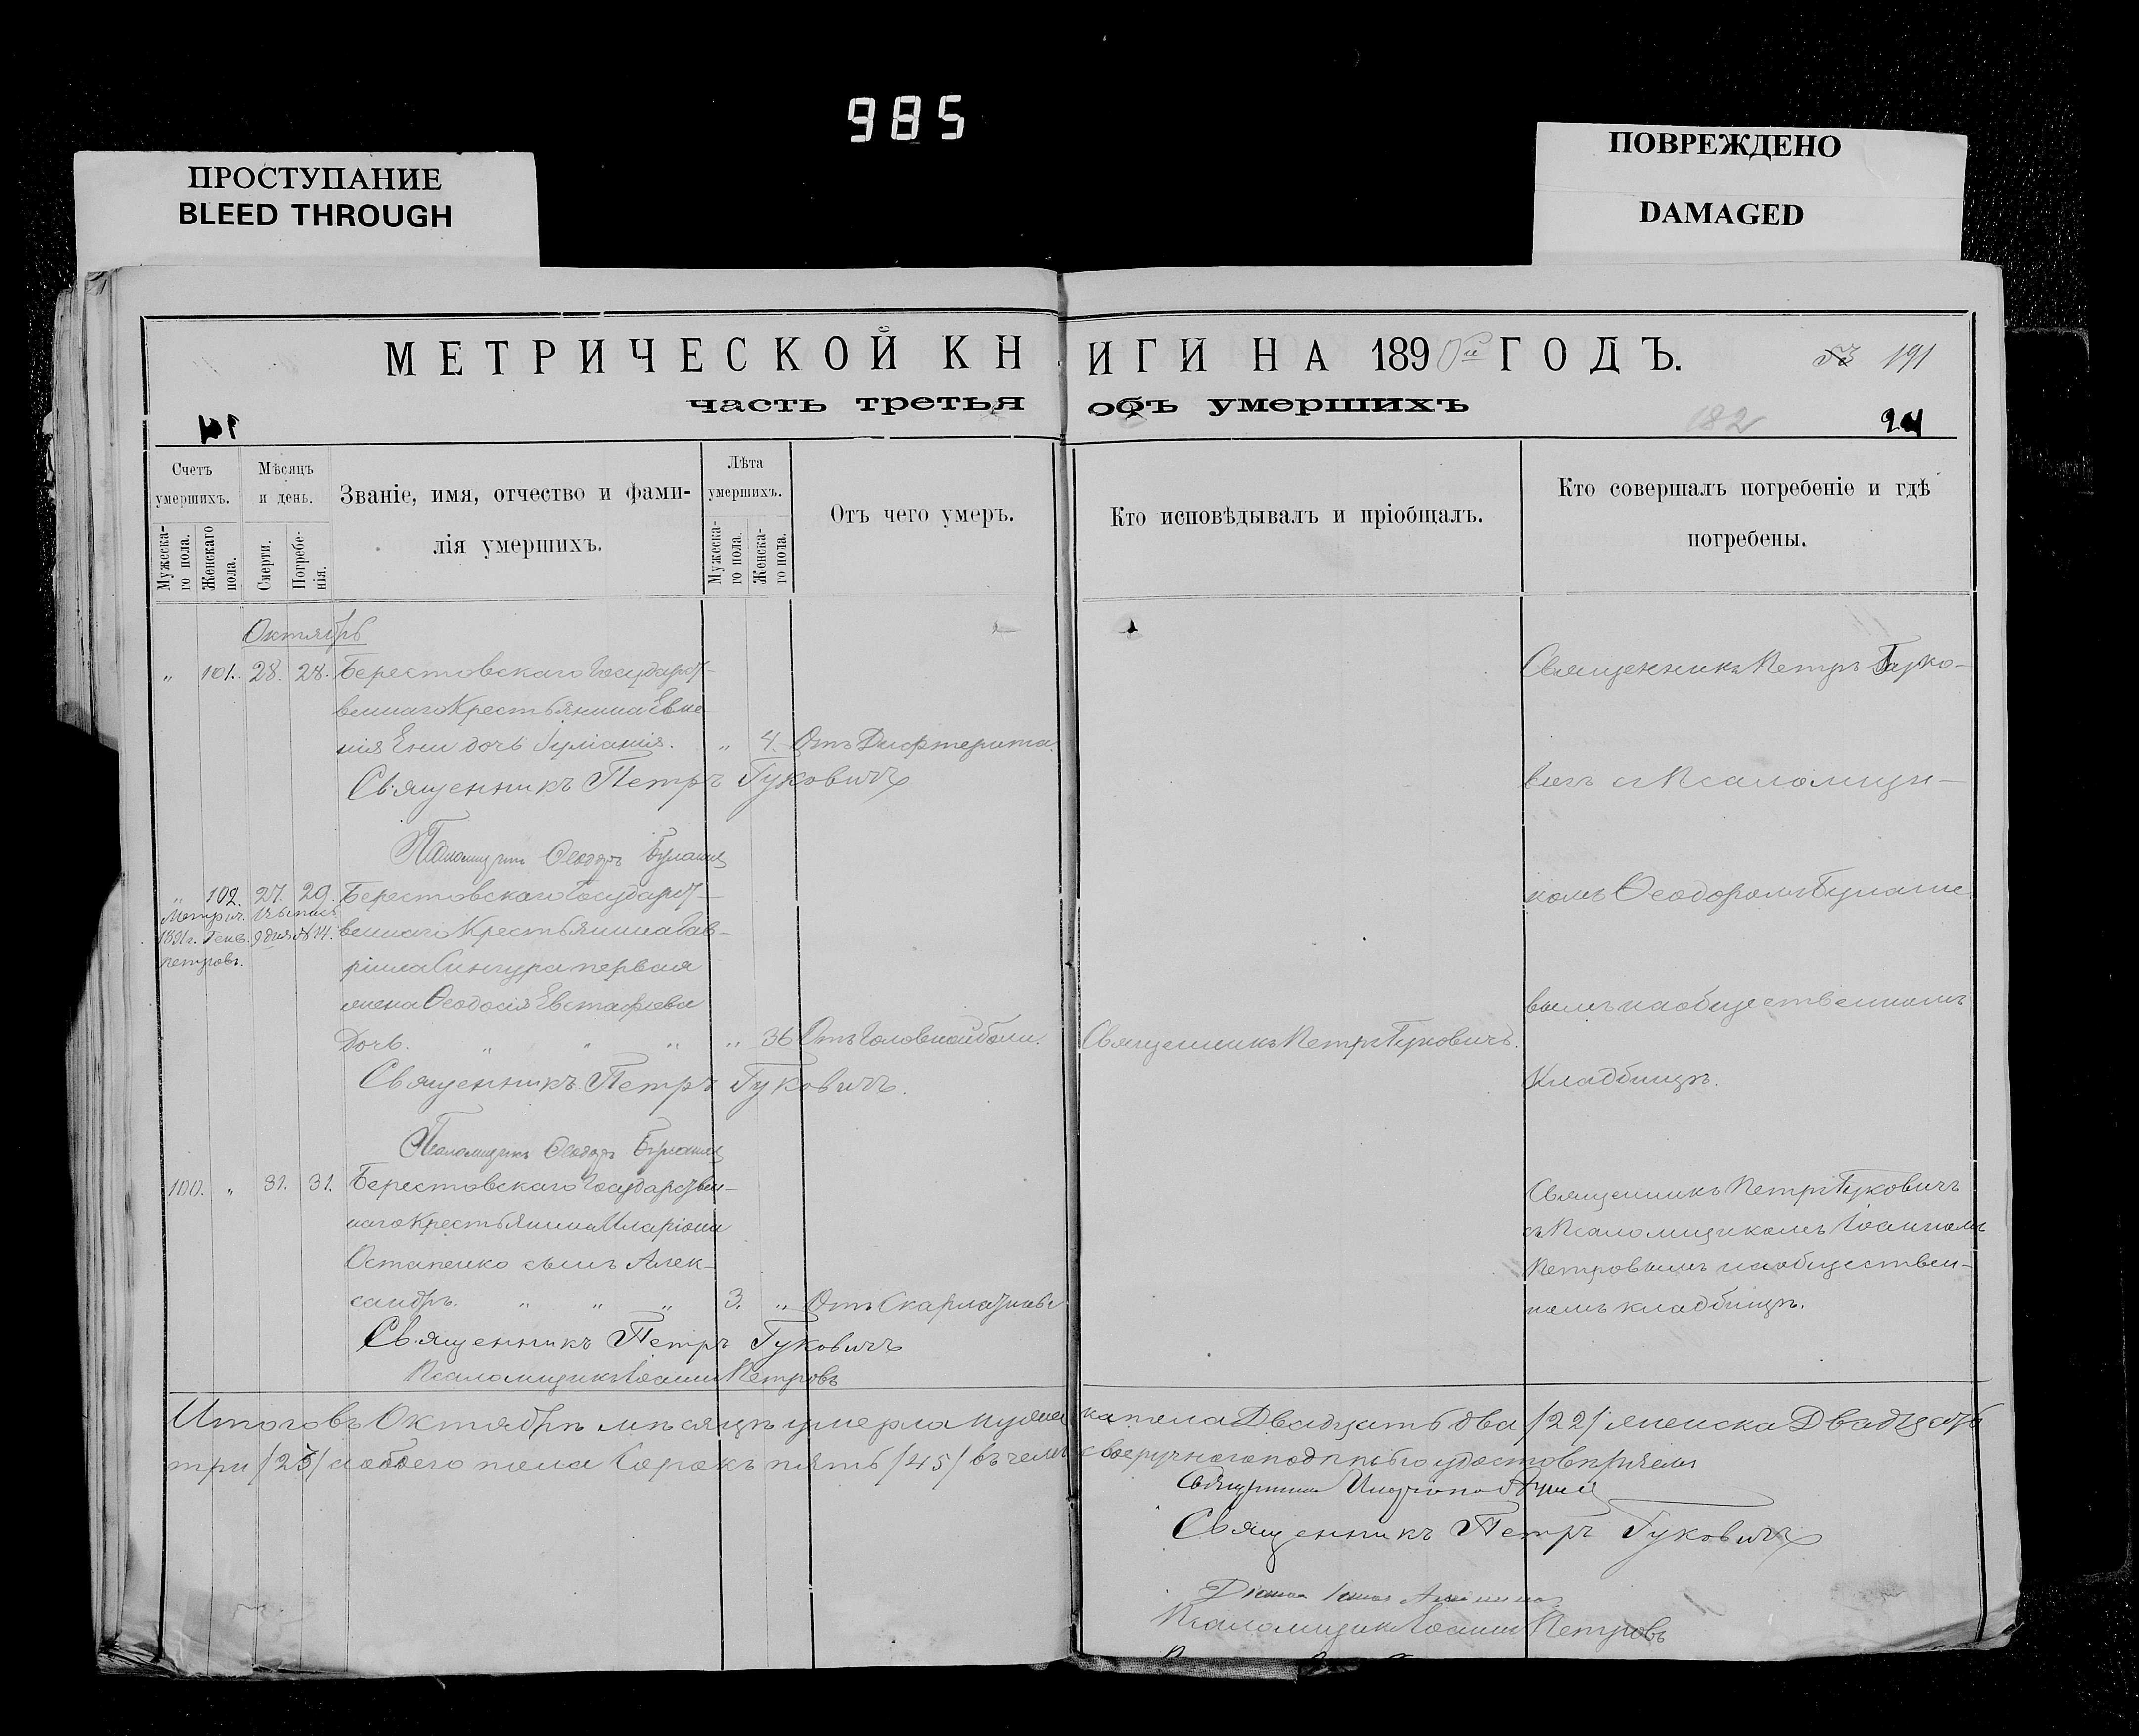 985
ПРОСТУПАНИЕ
BLEED THROUGH
ПОВРЕЖДЕНО
DAMAGED
МЕТРИЧЕСКОЙ КНИГИ НА 1890й ГОДЪ.
191
часть третья объ умершихъ
182
Счетъ умершихъ.
Мужеска-го пола.
Женскаго пола.
Мѣсяцъ и день.
Смерти.
Погребе-нія.
Званіе, имя, отчество и фами-
лія умершихъ.
Лѣта умершихъ.
Мужеска-го пола.
Женска-го пола.
Отъ чего умеръ.
Кто исповѣдывалъ и пріобщалъ.
Кто совершалъ погребеніе и гдѣ
погребены.
Октябрь
„ 101. 28. 28. Берестовскаго Государст-
веннаго Крестьянина Евме-
нія Ени дочь Іуліанія. „ 4. Отъ Дифтерита.
Священникъ Петръ Гуковичъ
Псаломщикъ Ѳеодоръ
Священникъ Петръ Гуко-
вичъ съ Псаломщи-
комъ Ѳеодоромъ
вымъ на общественномъ
Кладбищѣ.
„ 102. 27. 29. Берестовскаго Государст-
Метрич. Выпись
1891г. Генв. 9 дня № 14.
Петровъ.
веннаго Крестьянина Гав-
ріила Сингура первая
жена Ѳеодосія Евстафіева
Дочь. „ „ „ „ 36 Отъ Головной боли. Священникъ Петръ Гуковичъ.
Священникъ Петръ Гуковичъ.
Псаломщикъ Ѳеодоръ
100. „ 31. 31. Берестовскаго Государствен-
наго Крестьянина Иларіона
Остапенко сынъ Алек-
сандръ. „ „ „ 3. „ Отъ Скарлатины
Священникъ Петръ Гуковичъ
Псаломщикъ Іоаннъ Петровъ
Священникъ Петръ Гуковичъ
съ Псаломщикомъ Іоанномъ
Петровымъ на обществен-
номъ кладбищѣ.
Итого въ Октябрѣ мѣсяцѣ умерло мужеска пола Двадцать два /22/ женска Двадцать
три /23/ а обоего пола Сорокъ пять /45/ въ чемъ своеручного подписью удостовѣряемъ
Священникъ
Священникъ Петръ Гуковичъ
Псаломщикъ Іоаннъ Петровъ